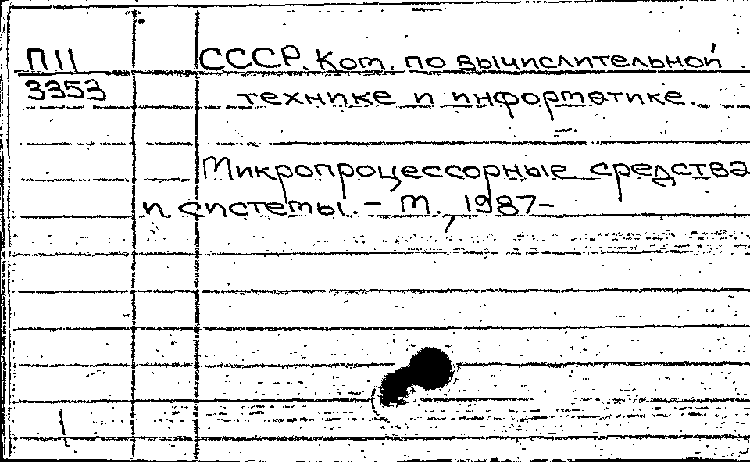 П11
3353
СССР. Ком. по вычислительной
технике и информатике.
Микропроцессорные средства
и системы. - М., 1987-